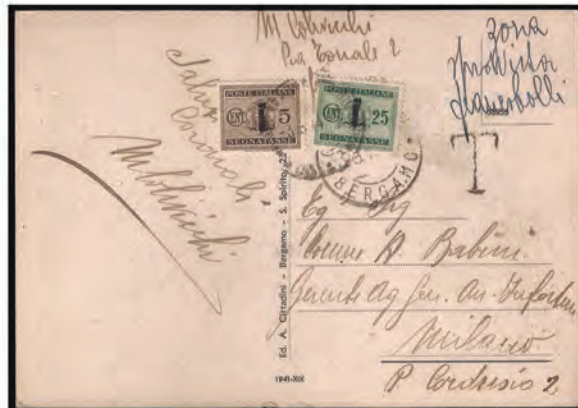 M
Via Tonale 2
zona
sprovvista
francobolli
Saluti
Cordiali
POSTE ITALIANE
CENT 5
SEGNATASSE
POSTE ITALIANE
CENT 25
SEGNATASSE
BERGAMO
T
Eg Sig
Comm A Babini
Gerente Ag Gen. An. Infortuni
Milano
P Cordusio 2
Ed. A. Cittadini - Bergamo - S. Spirito, 22
1941-XIX